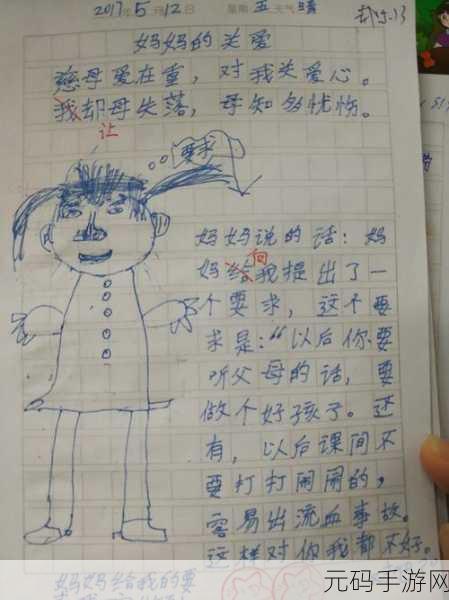 2017年5月12日 星期 五 天气 晴
妈妈的关爱
慈母爱在重，对我关爱心。
我却母失落，母知多忧伤。
让
要求
妈妈说的话：妈
向
妈给我提出了一
个要求，这个要
求是：“以后你要
听父母的话，要
做个好孩子。还
有，以后课间不
要打打闹闹的，
容易出流血事故。
这样对你我都不好。
妈妈给我的要
元码手游网